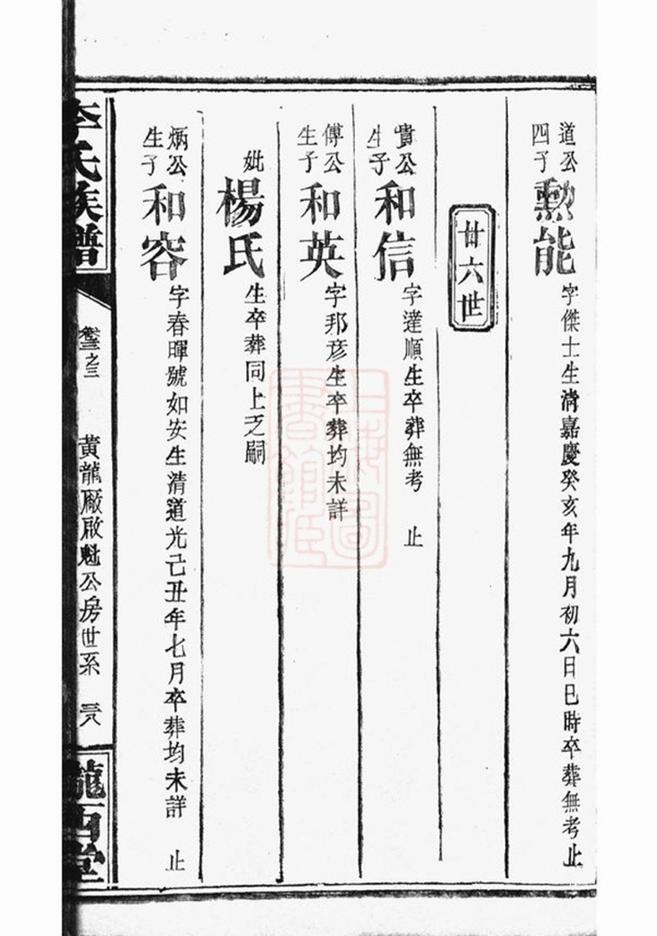 道公四子勲能字傑士生清嘉慶癸亥年九月初六日巳時卒葬無考止
廿六世
貴公生子和信字達順生卒葬無考 止
傅公生子和英字邦彦生卒葬均未詳
妣楊氏生卒葬同上乏嗣
炳公生子和容字春暉號如安生清道光己丑年七月卒葬均未詳 止
李氏族譜
卷之三
黃龍廠啟魁公房世系
隴西堂